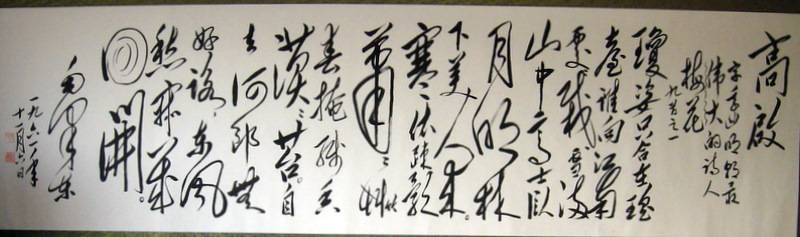 高啟
字季迪明朝最
伟大的诗人
梅花
九首之一
瓊姿只合在瑶
臺誰向江南
處處栽雪满
山中高士臥
月明林
下美人来。
寒依疎影
蕭蕭竹
春掩残香
漠漠苔。自
去何郎無
好詠東風
愁寂幾
回開。
毛澤东
一九六一年
十一月六日